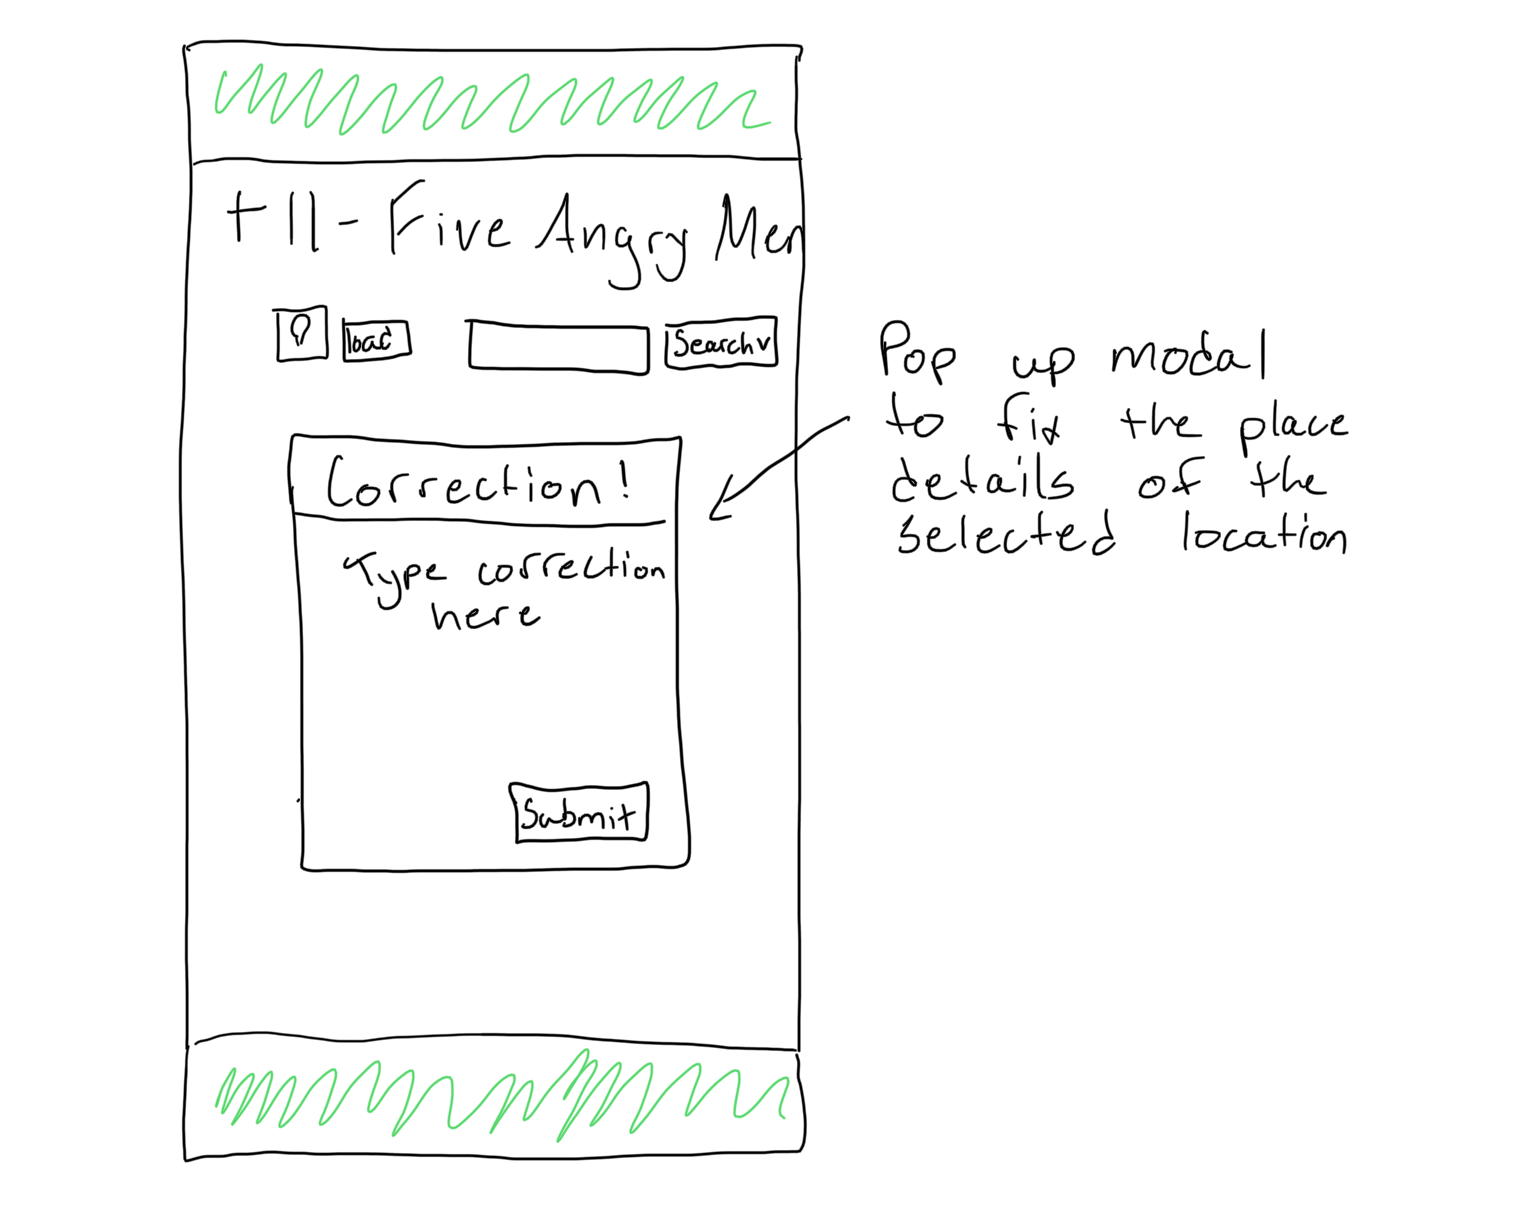 t11 - Five Angry Men
load
Search v
Correction!
Type correction
here
Submit
Pop up modal
to fix the place
details of the
selected location